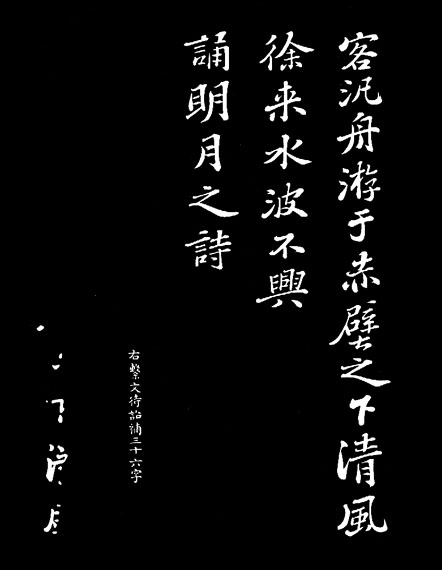 客汎舟游于赤壁之下清風
徐来水波不興
誦明月之詩
右繫文待詔補三十六字